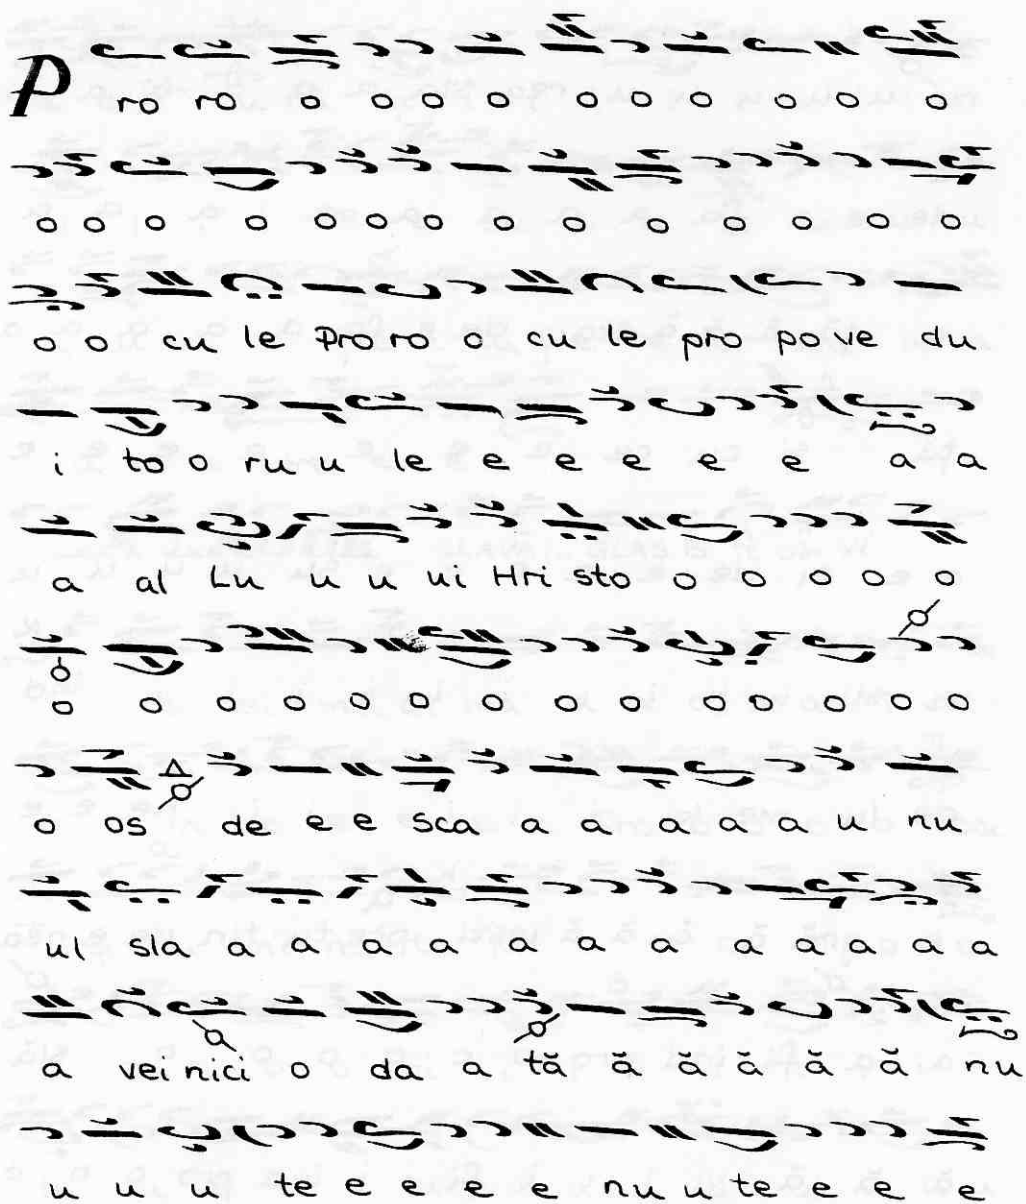 P ro ro o o o o o o o o o o
o o o o o o o o o o o o o
o o cu le Pro ro o cu le pro po ve du
i to o ru u le e e e e e a a
a al Lu u u ui Hri sto o o o o o
o o o o o o o o o o o o o o
o os de e e sca a a a a a u nu
ul sla a a a a a a a a a a a
a vei nici o da a tă ă ă ă ă ă nu
u u u te e e e e nu u te e e e